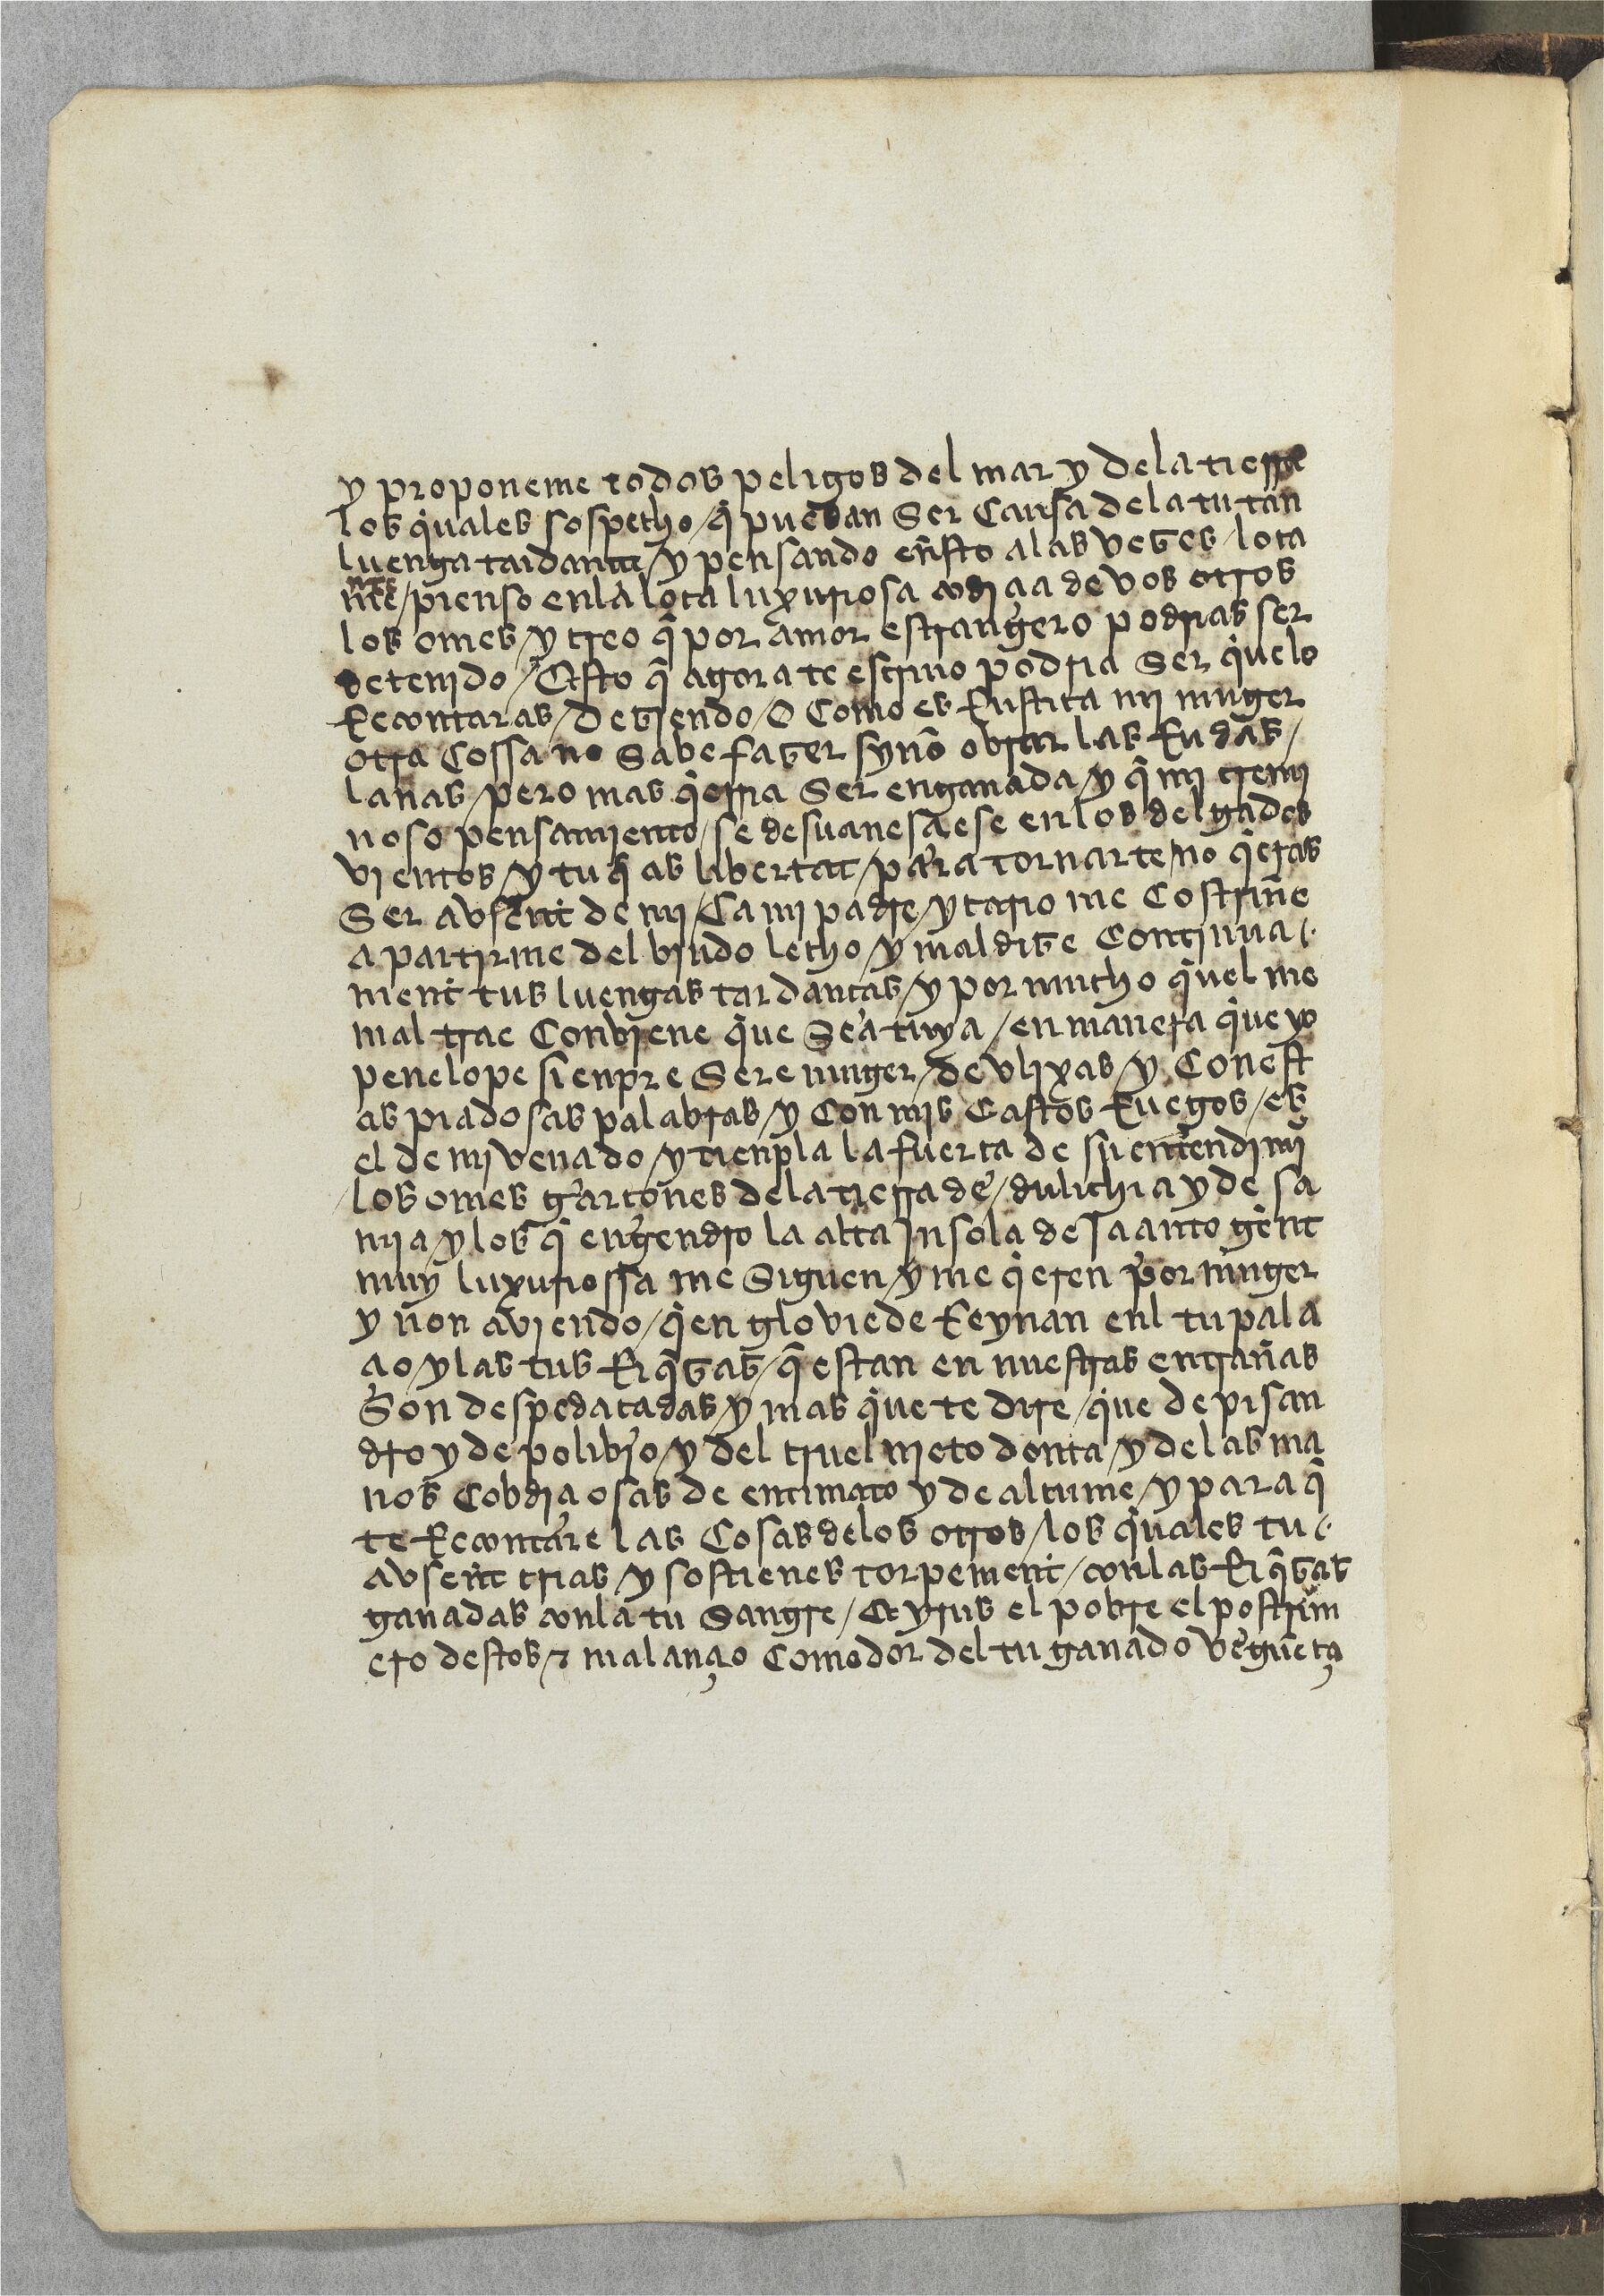 y proponeme todos peligos del mar y dela tierra
los q̇uales sospecho / q̇ puedan Ser Causa dela tu tan
luenga tardança / y pensando en̄sto alas vezes / loca
mēte / pienso enla loca luxuriosa codiçia de vos otros
los omes / y creo q̄ por amor estrangero podrias ser
detenido / Esto q̄ agora te escriuo podria Ser q̇uelo
Recontaras / deziendo / O Como es Rustica mi muger
otra Cossa no Sabe fazer synō obrar las Rudas /
lanas / pero mas q̇rria Ser enganada / y q̇ mi tremi
noso pensamiento / se desuanesçese enlos delgados
vientos / y tu q̄ as libertat / para tornarte / no q̇eras
Ser avsent̄ de mi / Ca mi padre / ytario me Costriñe
a partirme del biudo lecho / y maldize Continua /.
ment̄ tus luengas tardanças / y por mucho q̇uel me
mal trae Conviene q̇ue Sea tuya / en manera q̇ue yo
penelope sienpre Sere muger / de vlixas / y Con est
as piadosas palabras / y Con mis Castos Ruegos / es
el de mi venado / y tienpla la fuerça de su entendimī
/ los omes garçones dela tierra de / dulichia y de sa
mia / y los q̄ engendro la alta Insola de Jaanto gent̄
muy luxuriossa me Siguen / y me q̇eren por muger
y non aviendo / q̇en glo viede Reynan enl tu pala
çio / y las tus Riq̄zas / q̄ estan en nuestras entrañas
Son despedaçadas / y mas q̇ue te dire / q̇ue de pisan
dro y de polibio / y del cruel meto donta / y delas ma
nos Cobdiçiosas de entimaco y de altume / y para q̄
te Recontare las Cosas delos otros / los q̇uales tu /.
avsent̄ crias / y sostienes torpement̄ / conlas Riq̄zas
ganadas conla tu Sangre / Et yrus el pobre el postrim
ero destos ⁊ malanço Comedor del tu ganado verguēça